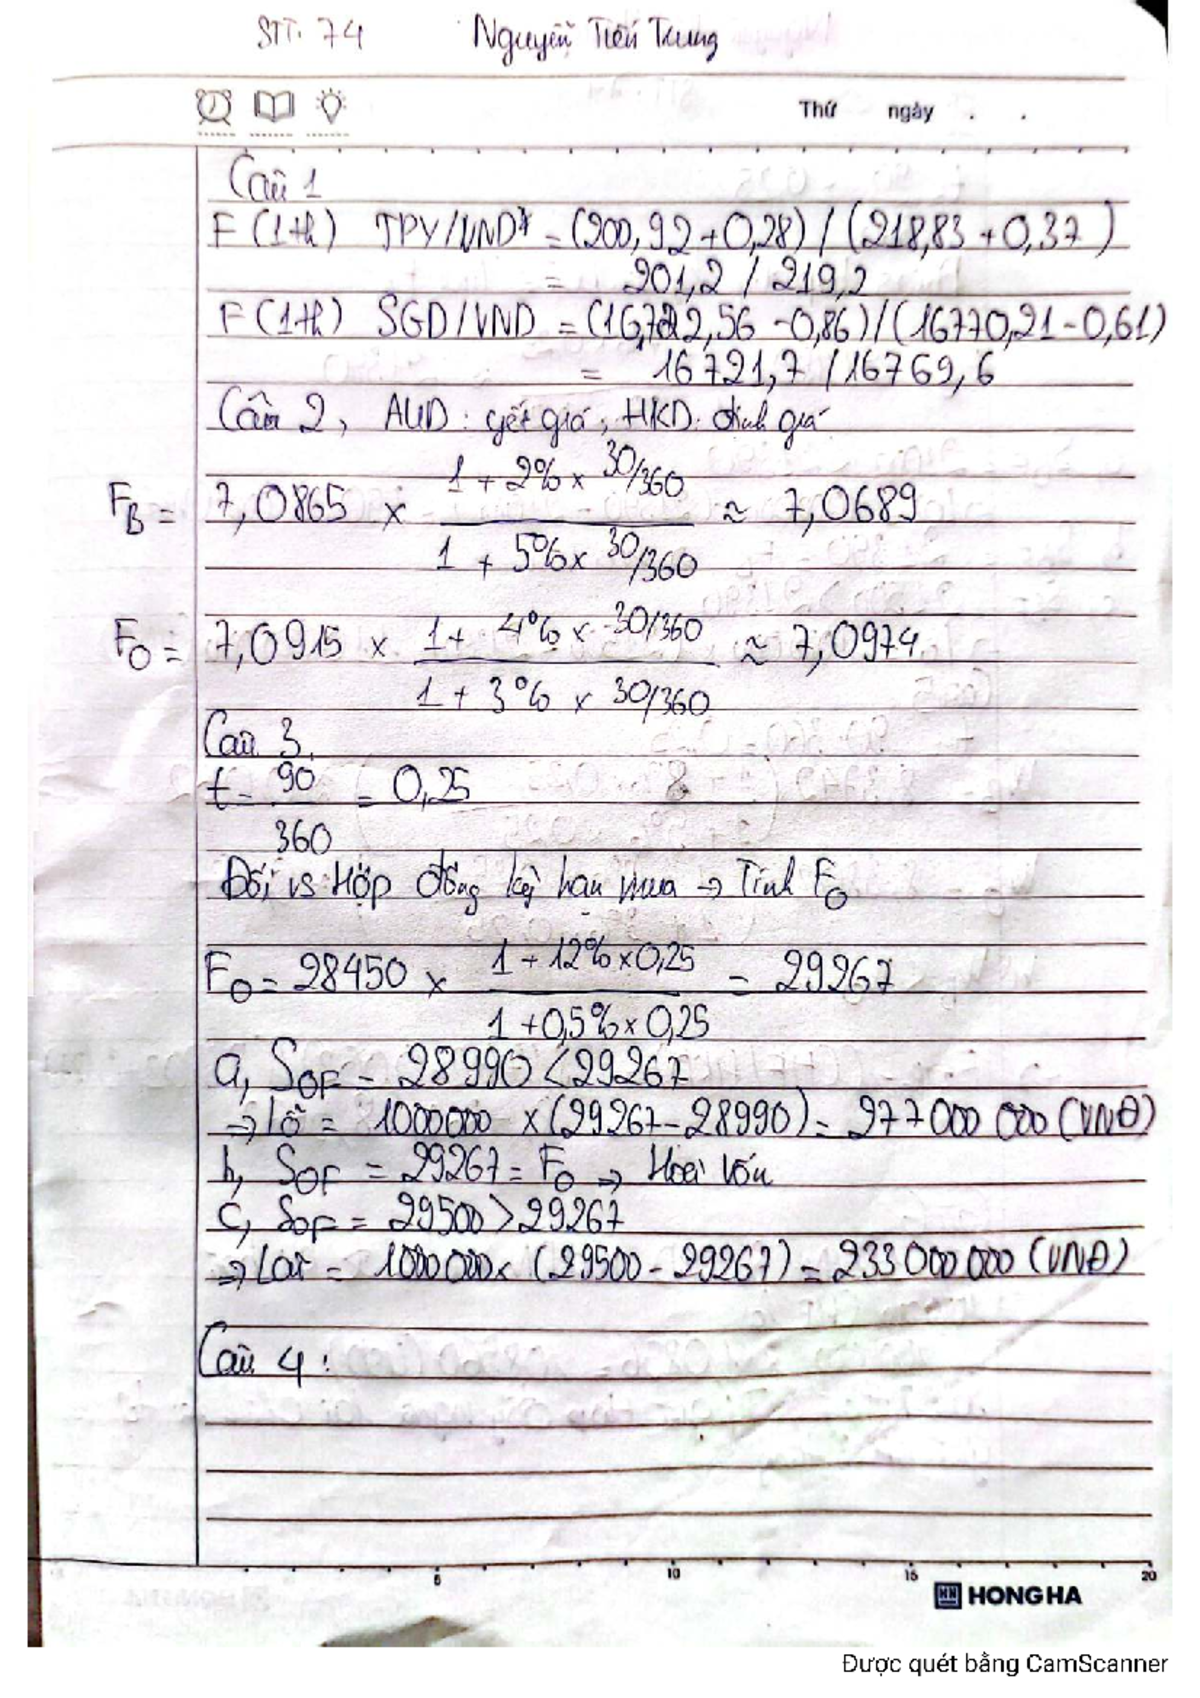 STT: 74 Nguyễn Tiến Trung
Thứ ngày . .
Câu 1
F (1th) JPY/VND = (200,92+0,28) / (218,83 +0,37)
= 201,2 / 219,2
F (1th) SGD/VND = (16722,56 -0,86)/(16770,21-0,61)
= 16721,7 /16769,6
Câu 2, AUD: yết giá, HKD: định giá
F_B = 7,0865 × (1 + 2% × 30/360) / (1 + 5% × 30/360) ≈ 7,0689
F_O = 7,0915 × (1 + 4% × 30/360) / (1 + 3% × 30/360) ≈ 7,0974
Câu 3,
t = 90/360 = 0,25
Đối vs Hợp đồng kỳ hạn mua → Tính F_O
F_O = 28450 × (1 + 12% × 0,25) / (1 + 0,5% × 0,25) = 29267
a, S_OF = 28990 < 29267
⇒ Lỗ = 1000000 × (29267 - 28990) = 277 000 000 (VNĐ)
b, S_OF = 29267 = F_O ⇒ Hoà vốn
c, S_OF = 29500 > 29267
⇒ Lãi = 1000000 × (29500 - 29267) = 233 000 000 (VNĐ)
Câu 4 :
5 10 15 20
HH HONG HA
Được quét bằng CamScanner